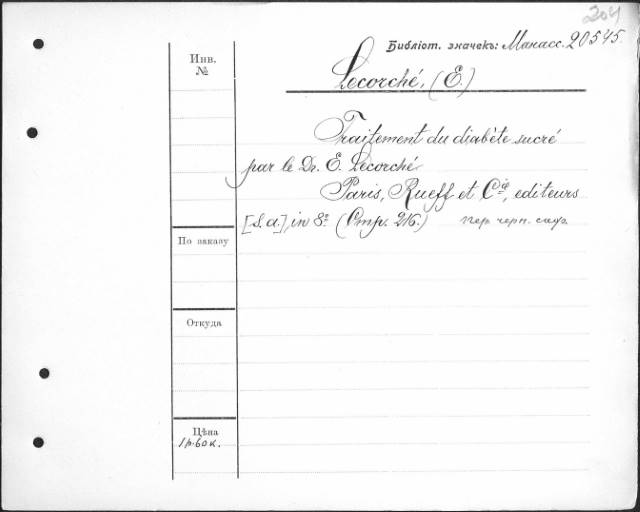 204
Библіот. значекъ: Манасс. 20545.
Инв.
№
Lecorché, (E.)
Traitement du diabète sucré
par le Dr. E. Lecorché.
Paris, Rueff et Cie, editeurs
[S. a.] in 8º (Стр. 216.) пер. черн. сафъ.
По заказу
Откуда
Цѣна
1 р. 60 к.